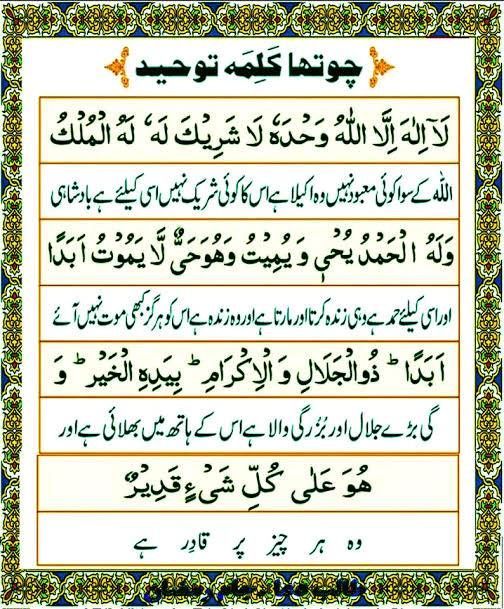 چوتھا کَلِمَہ توحید
لَآ اِلٰهَ اِلَّا اللهُ وَحْدَهٗ لَا شَرِيْكَ لَهٗ لَهُ الْمُلْكُ
اللہ کے سوا کوئی معبود نہیں وہ اکیلا ہے اس کا کوئی شریک نہیں اسی کیلئے ہے بادشاہی
وَلَهُ الْحَمْدُ يُحْىٖ وَ يُمِيْتُ وَهُوَحَىٌّ لَّا يَمُوْتُ اَبَدًا
اور اسی کیلئے حمد ہے وہی زندہ کرتا اور مارتا ہے اور وہ زندہ ہے اس کو ہرگز کبھی موت نہیں آئے
اَبَدًا ؕ ذُوالْجَلَالِ وَ الْاِكْرَامِ ؕ بِيَدِهِ الْخَيْرُ ؕ وَ
گی بڑے جلال اور بُزُرگی والا ہے اس کے ہاتھ میں بھلائی ہے اور
هُوَ عَلٰى كُلِّ شَىْءٍ قَدِيْرٌ
وہ ہر چیز پر قادِر ہے